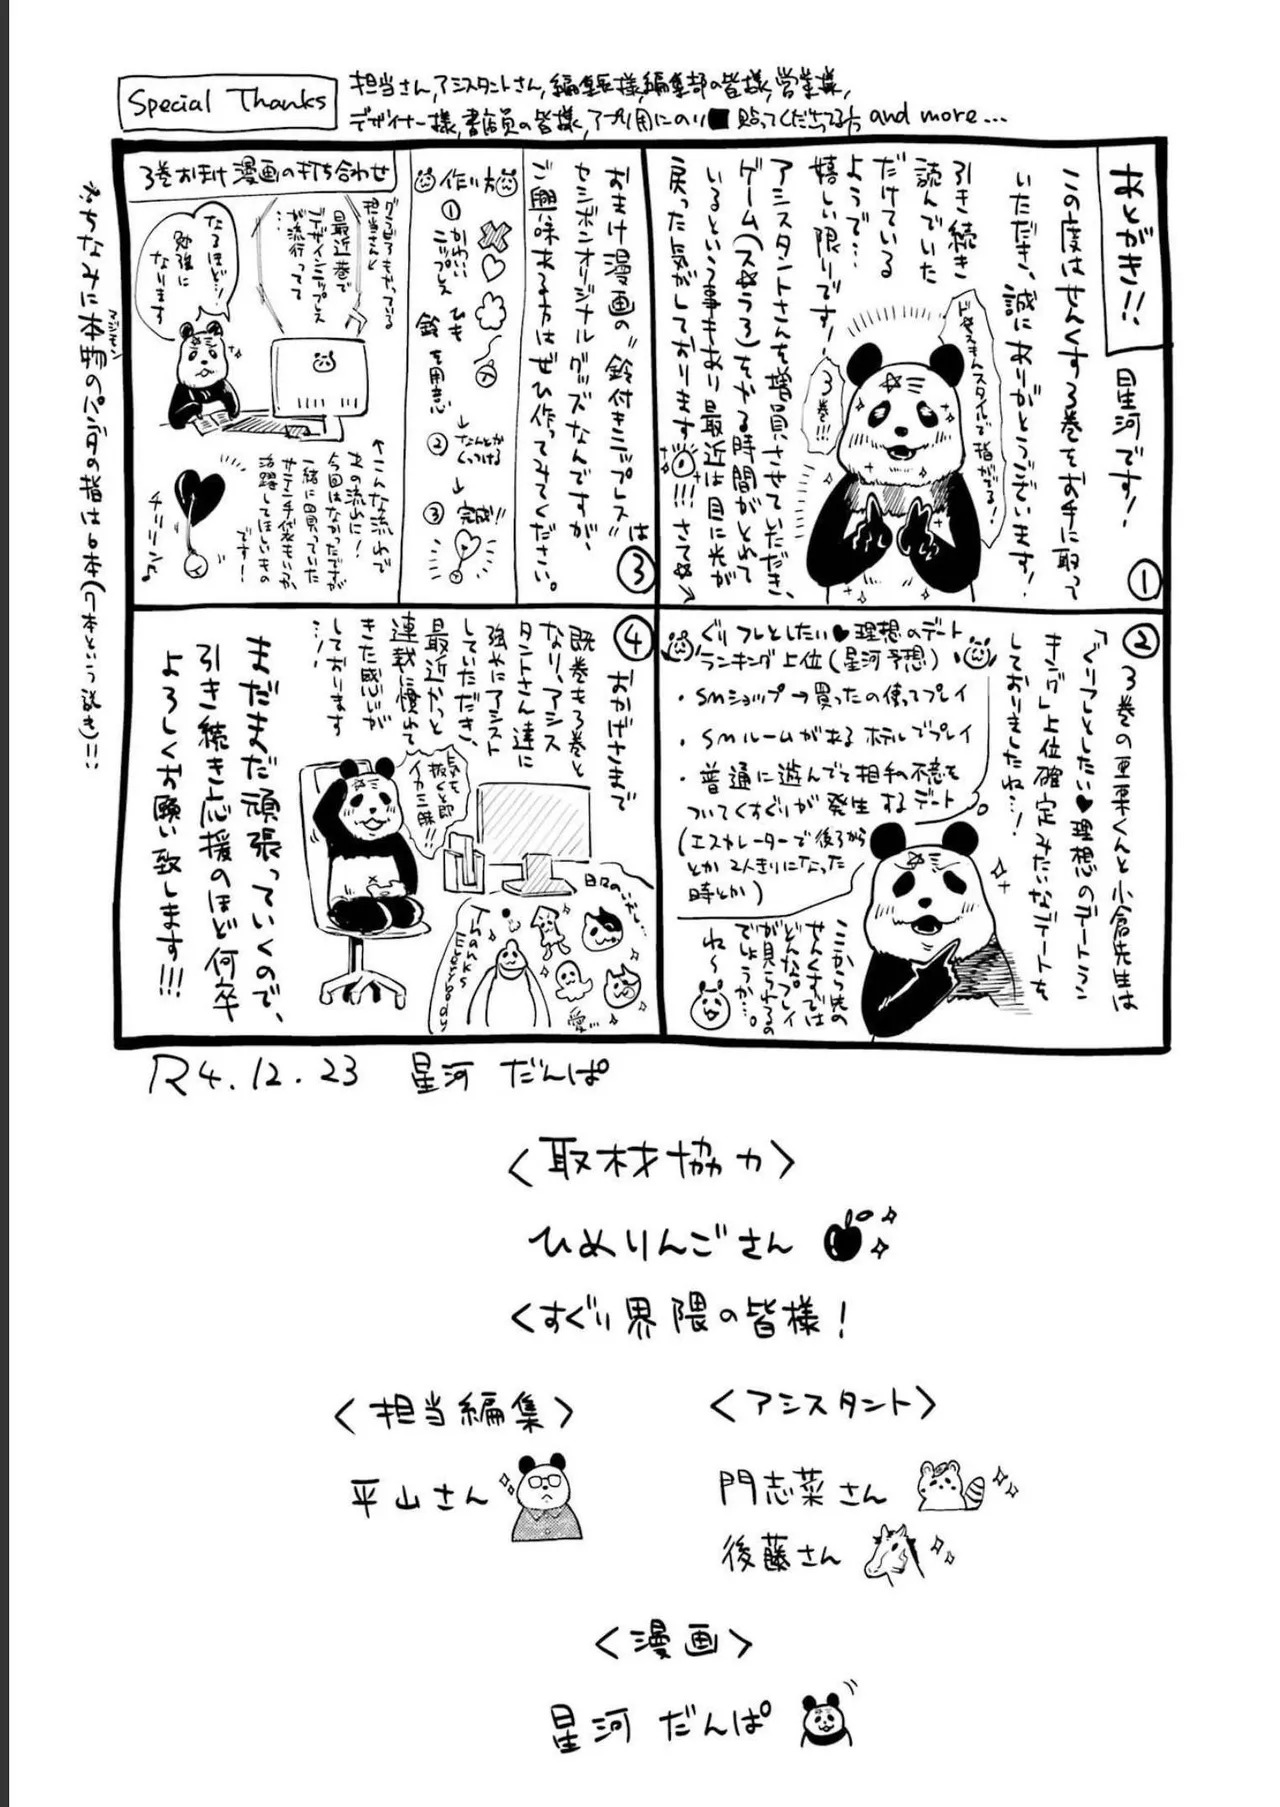 Special Thanks
担当さん,アシスタントさん,編集長様,編集部の皆様,営業様,
デザイナー様,書店員の皆様,アプリ用にのり■貼ってくださってる方 and more...
あとがき!! 星河です!
①
この度はせんくする3巻をお手に取って
いただき、誠にありがとうございます!
引き続き
読んでいた
だけている
ようで…
嬉しい限りです!
ドクスキんスタイルで指がでる!
3巻!!!
アシスタントさんを増員させていただき、
ゲーム(ス☆うろ)をやる時間がとれて
いるという事もあり最近は目に光が
戻った気がしております!!! さて☆
②
3巻の亜栗くんと小倉先生は
「くりフレとしたい♥理想のデートラン
キング」上位確定みたいなデートを
しておりましたね…!
ぐりフレとしたい♥理想のデート
ランキング上位(星河予想)
・SMショップ→買ったの使ってプレイ
・SMルームがあるホテルでプレイ
・普通に遊んでて相手の不意を
ついてくすぐりが発生するデート
(エスカレーターで後ろから
とか2人きりになった
時とか)
ここから先の
せんくすでは
どんなプレイ
が見られるの
でしょうか…。
ね〜
③
おまけ漫画の"鈴付きニップレス"は
センボンオリジナルグッズなんですが、
ご興味ある方はぜひ作ってみてください。
作い方
①かわいいニップレス
ひも
鈴
を用意
↓
②なんとかくっつける
↓
③完成!!
3巻おまけ漫画の打ち合わせ
グラブるもやっている
担当さんと
最近巷で
デザインニップレス
が流行ってて
…
なるほど…!
勉強に
なります
↑こんな流れで
あの流れに!
今回はなかったですが
一緒に買っていた
サテン手袋もいつか
活躍してほしいもの
です!
チリリン♪
④
おかげさまで
既巻も3巻と
なり、アシス
タントさん達に
強めにアシスト
していただき、
最近やっと
連載に慣れて
きた感じが
しております
…!
気を
抜くと即
イカ三昧!!
日々のいやし…
Thanks
Everybody
愛…
まだまだ頑張っていくので、
引き続き応援のほど何卒
よろしくお願い致します!!!
※ちなみに本物のパンダの指は6本(7本という説も)!!
R4.12.23 星河 だんぱ
〈取材協力〉
ひめりんごさん
くすぐり界隈の皆様!
〈担当編集〉
平山さん
〈アシスタント〉
門志菜さん
後藤さん
〈漫画〉
星河 だんぱ